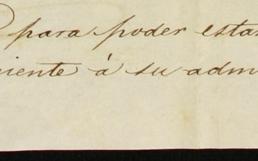 para poder estar
iente à su adm